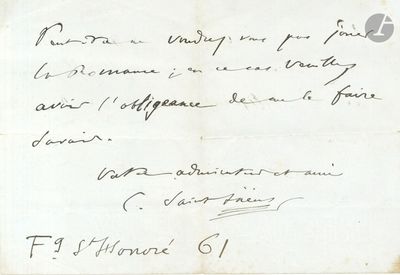 Peut-être ne voudrez vous pas jouer
la Romance ; en ce cas veuillez
avoir l'obligeance de me le faire
savoir.
Votre admirateur et ami
C. Saint-Saëns
Fg St Honoré 61